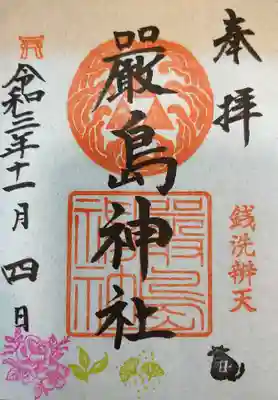 奉拝
銭洗辨天
嚴島神社
嚴島神社
令和三年十一月四日